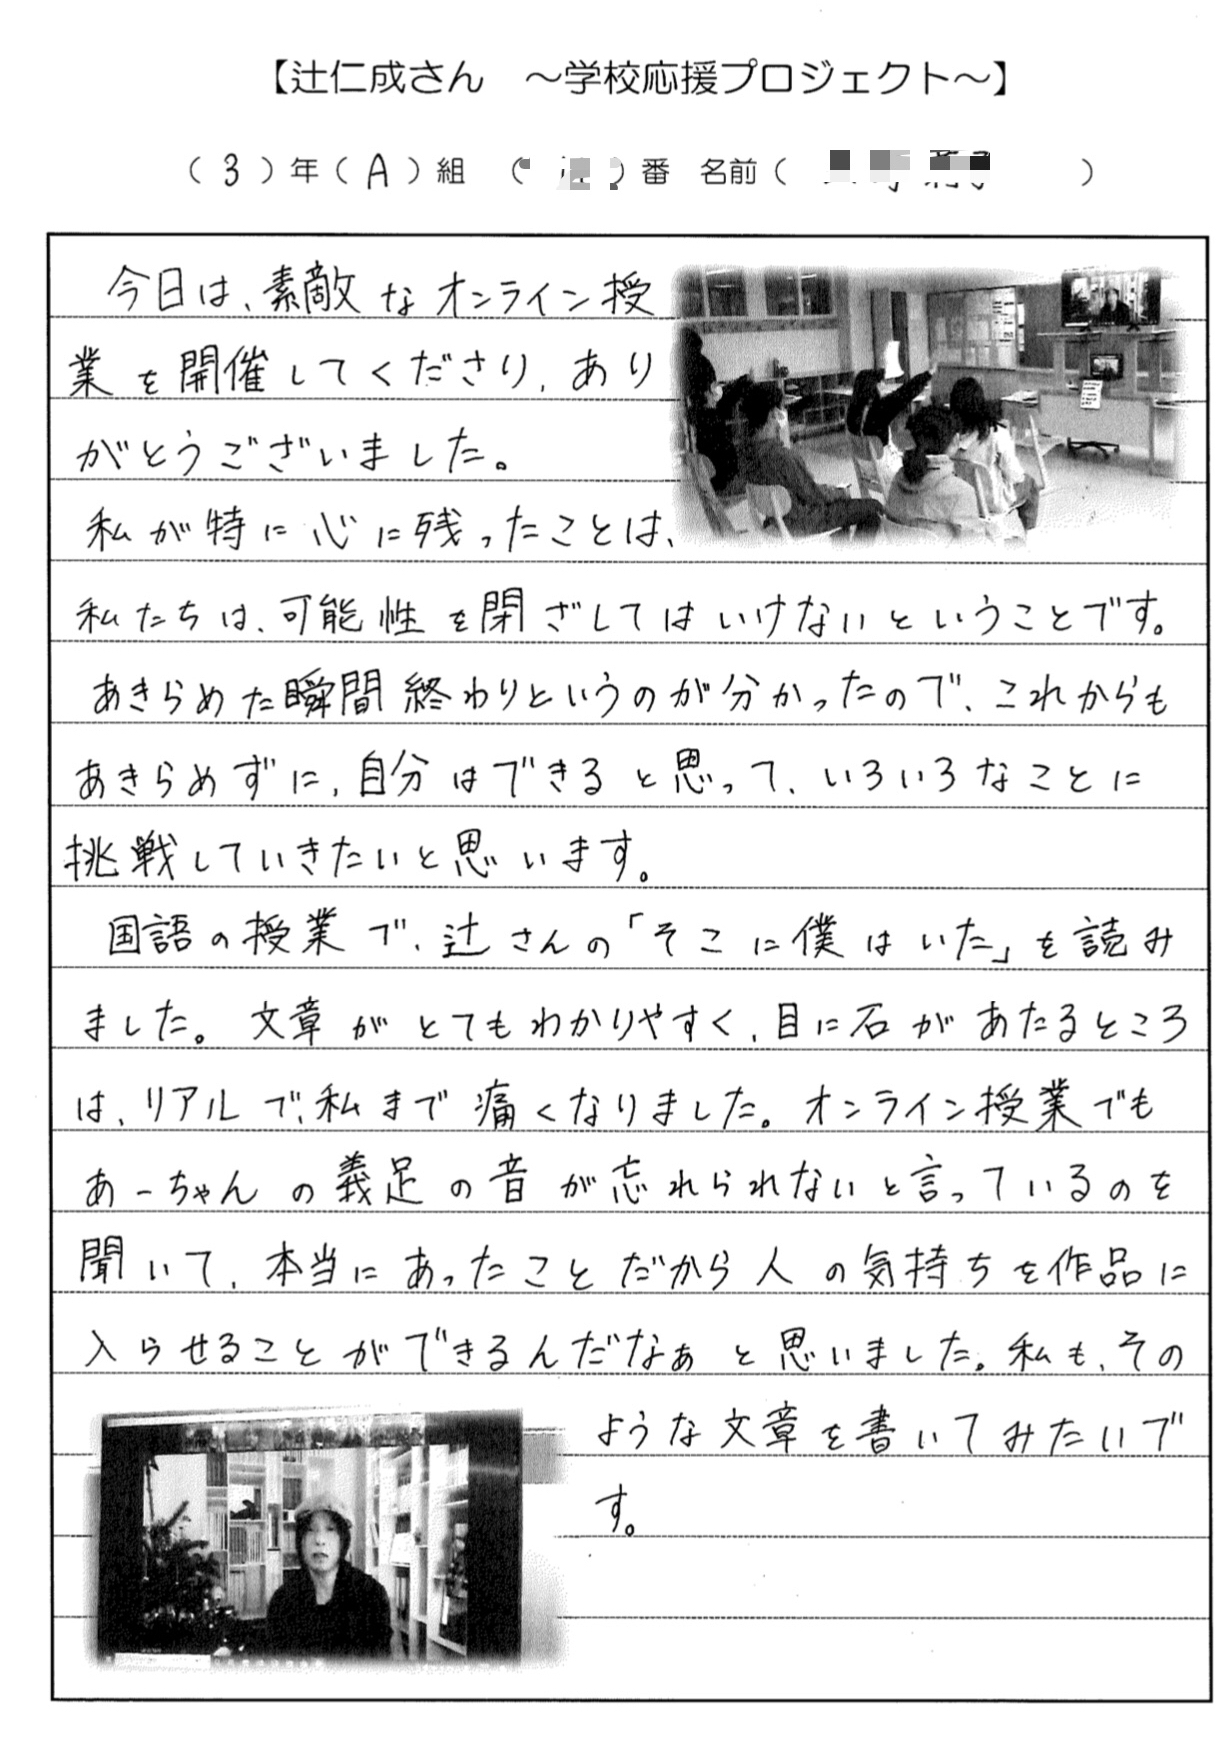 【辻仁成さん　～学校応援プロジェクト～】
（ 3 ）年（ A ）組　（　　）番　名前（　　　）
今日は、素敵なオンライン授
業を開催してくださり、あり
がとうございました。
私が特に心に残ったことは、
私たちは、可能性を閉ざしてはいけないということです。
あきらめた瞬間終わりというのが分かったので、これからも
あきらめずに、自分はできると思って、いろいろなことに
挑戦していきたいと思います。
国語の授業で、辻さんの「そこに僕はいた」を読み
ました。文章がとてもわかりやすく、目に石があたるところ
は、リアルで、私まで痛くなりました。オンライン授業でも
あーちゃんの義足の音が忘れられないと言っているのを
聞いて、本当にあったことだから人の気持ちを作品に
入らせることができるんだなぁと思いました。私も、その
ような文章を書いてみたいで
す。